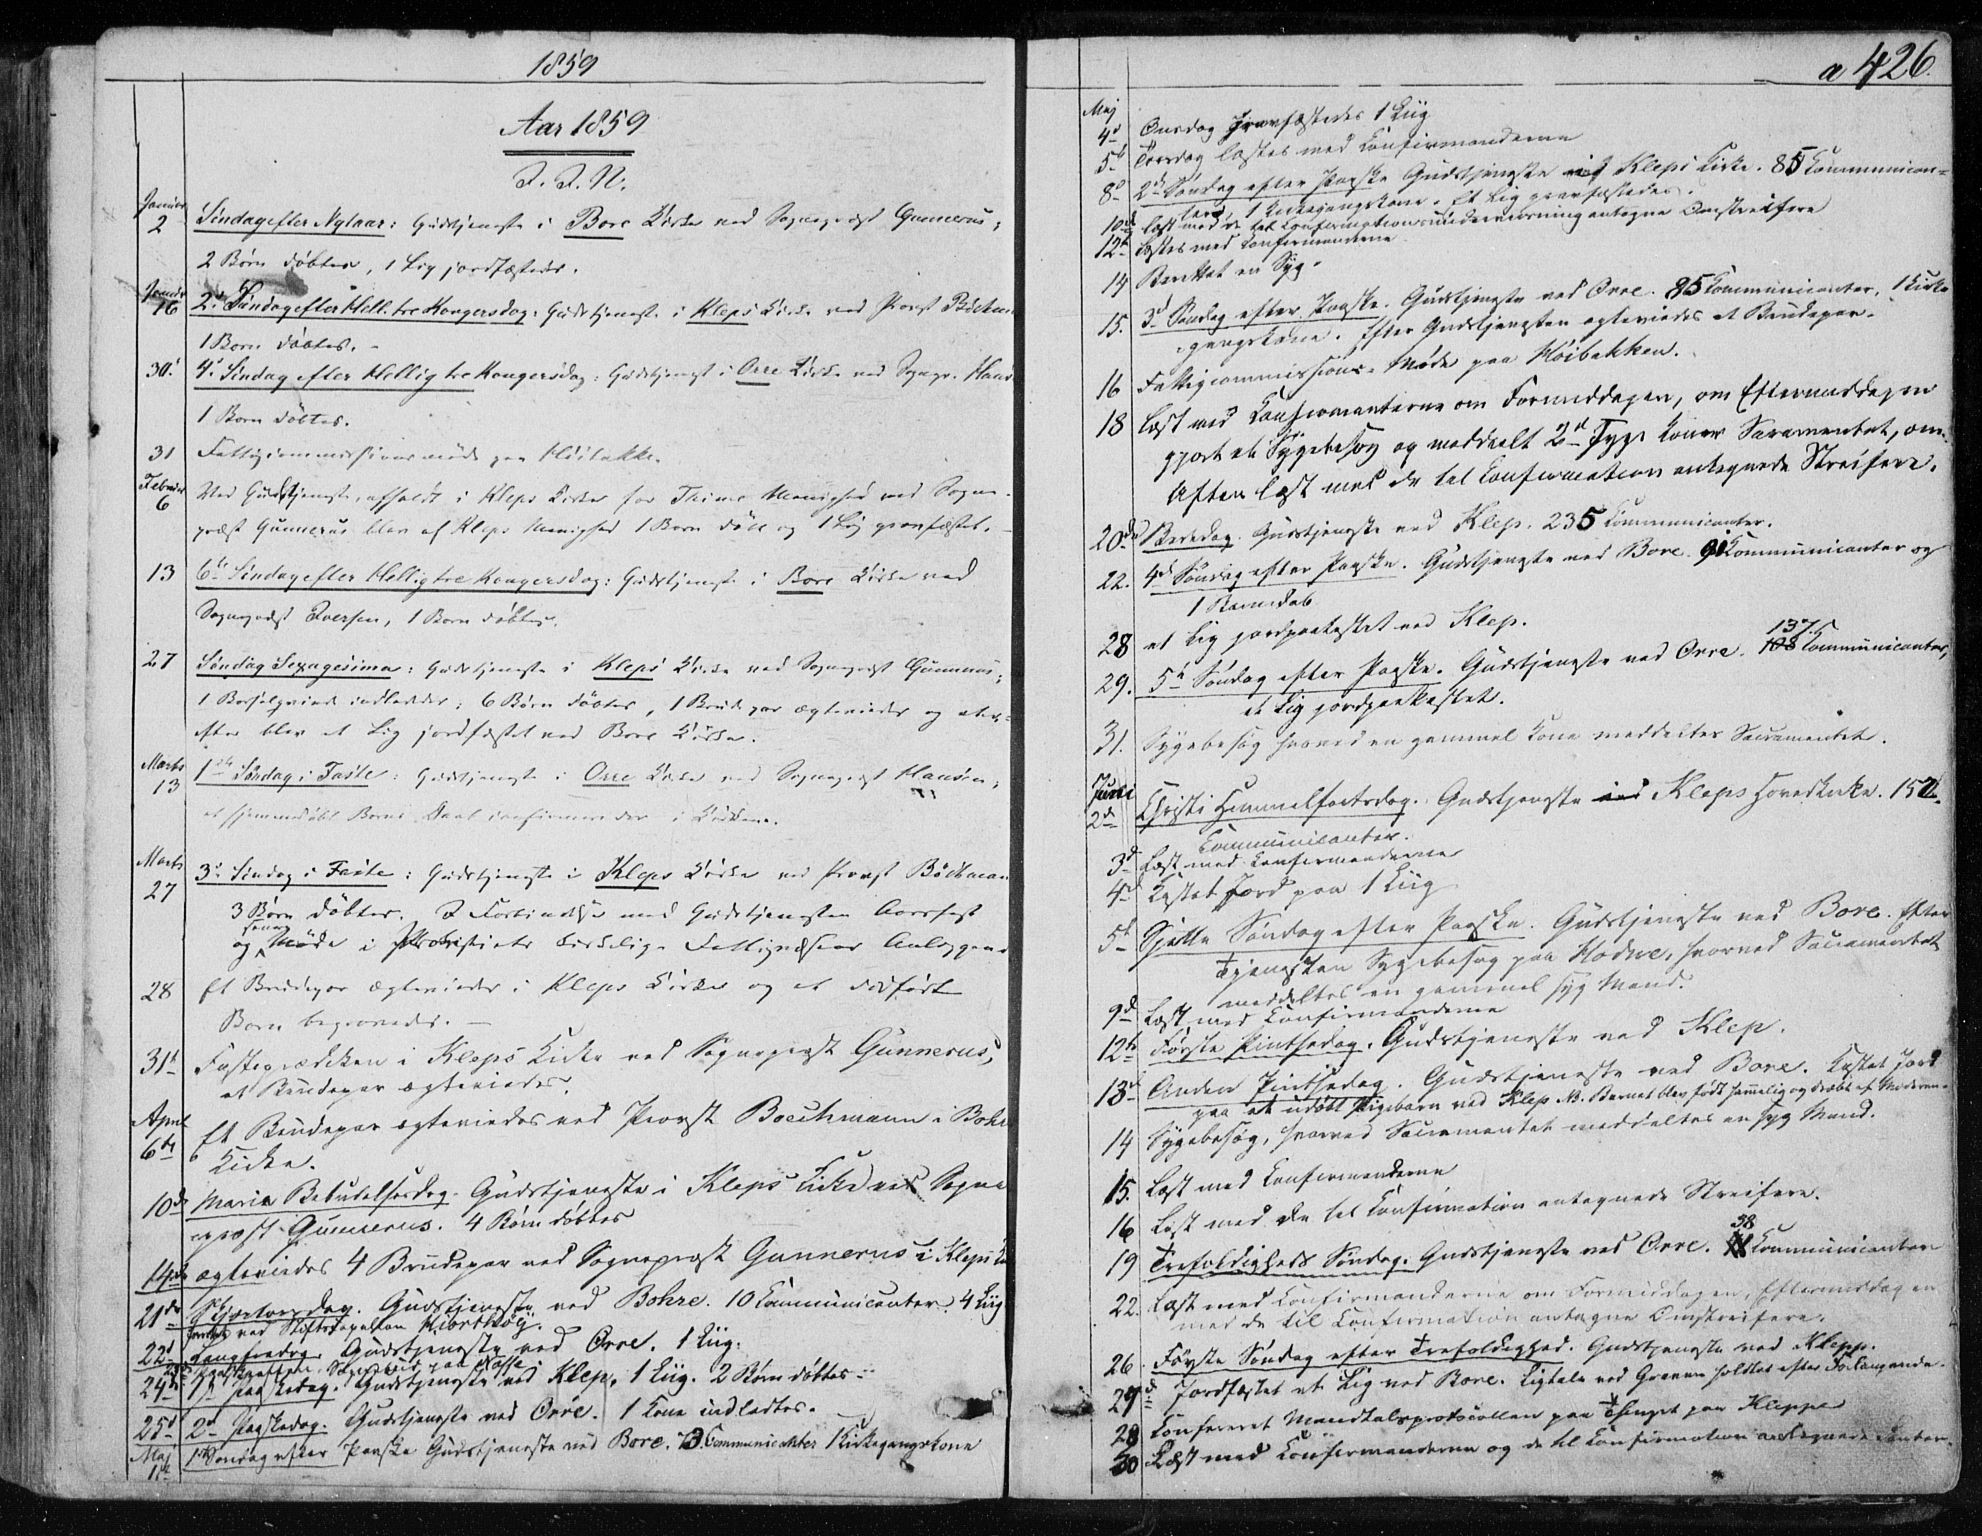 1859
Aar 1859
I. J. N.
Januar 2 Søndag efter Nytaar: Gudstjeneste i Bore Kirke ved Sognepræst Gunnerus;
2 Børn døbtes, 1 Lig jordfæstedes.
Januar 16 2d Søndag efter Hell. tre Kongersdag: Gudstjeneste i Kleps Kirke ved Provst
1 Barn døbtes.
30d 4d Søndag efter Hellig tre Kongersdag: Gudstjeneste i Orre Kirke ved Sognepr.
1 Barn døbtes.
31 Fattigcommissionsmøde paa Høibakke.
Februar 6 Ved Gudstjeneste, afholdt i Kleps Kirke for Thime Menighed ved Sogne-
præst Gunnerus blev af Kleps Menighed 1 Barn døbt og 1 Lig gravfæstet.
13 6te Søndag efter Hellig tre Kongersdag: Gudstjeneste i Bore Kirke ved
Sognepræst Iversen, 1 Barn døbtes.
27 Søndag Sexagesima: Gudstjeneste i Kleps Kirke ved Sognepræst Gunnerus;
1 Barselqvinde indlededes; 6 Børn døbtes, 1 Brudepar ægteviedes og
efter blev et Lig jordfæstet ved Bore Kirke.
Marts 13 1ste Søndag i Faste: Gudstjeneste i Orre Kirke ved Sognepræst Hansen;
et hjemmedøbt Barns Daab confirmeredes i Kirken.
Marts 27 3d Søndag i Faste: Gudstjeneste i Kleps Kirke ved Provst Böckman
3 Børn døbtes. I Forbindelse med Gudstjenesten
og Møde i
28 Et Brudepar ægteviedes i Kleps Kirke og et dødfødt
Barn begravedes.
31te Fasteprædiken i Kleps Kirke ved Sognepræst Gunnerus,
et Brudepar ægteviedes.
April 6te Et Brudepar ægteviedes ved Provst Boeckmann i Bohre
Kirke.
10de Maria Bebudelsesdag. Gudstjeneste i Kleps Kirke ved Sogne
præst Gunnerus. 4 Børn døbtes
14de ægteviedes 4 Brudepar ved Sognepræst Gunnerus i Kleps
21de Skjærtorsdag. Gudstjeneste ved Bohre. 10 Communicanter. 4 Liig
ved Stiftscapellan
22d Langfredag Gudstjeneste ved Orre. 1 Liig.
24de 1ste Paaskedag. Gudstjeneste ved Klep. 1 Liig. 2 Børn døbtes
25d 2d Paaskedag. Gudstjeneste ved Orre. 1 Kone indledtes.
Maj 1ste 1ste Søndag efter Paaske Gudstjeneste ved Bore. Communicanter 1 Kirkegangskone
a 426.
Maj 4d Onsdag gravfæstedes 1 Liig
5te Torsdag læstes med Confirmanderne
8de 2den Søndag efter Paaske Gudstjeneste Kleps Kirke. 85 Communican=
ter 1 Kirkegangskone. Et Lig gravfæstedes.
10de læst med de til Confirmationsundervisning antagne Omstreifere
12te læstes med Confirmanderne
14 Berettet en Syg.
15. 3d Søndag efter Paaske. Gudstjeneste ved Orre. 85 Communicanter, 1 Kirke
gangskone. Efter Gudstjenesten ægteviedes et Brudepar.
16 Fattigcommissions-Møde paa Höibakken.
18 Læst med Confirmanterne om Formiddagen, om Eftermiddagen
gjort et Sygebesøg og meddeelt 2d syge Koner Sacramentet, om
Aften læst med de til Confirmation antegnede Streifere.
20de Bededag. Gudstjeneste ved Klep. 235 Communicanter.
22. 4d Søndag efter Paaske. Gudstjeneste ved Bore. Communicanter og
1 Barnedåb
28 et Lig jordpaakastet ved Klep.
29. 5te Søndag efter Paaske. Gudstjeneste ved Orre. 137 Communicanter,
et Lig jordpaakastet.
31. Sygebesøg hvorved en gammel Kone meddeltes Sacramentet.
Juni 2d Christi Himmelfartsdag. Gudstjeneste ved Kleps Hovedkirke.
Communicanter.
3d Læst med Confirmanderne
4d Kastet Jord paa 1 Liig
5te Sjette Søndag efter Paaske. Gudstjeneste ved Bore. Efter
Tjenesten Sygebesøg paa Hodne, hvorved Sacramentet
meddeltes en gammel syg Mand.
9d Læst med Confirmanderne
12te Første Pintsedag. Gudstjeneste ved Klep.
13d Anden Pintsedag. Gudstjeneste ved Bore. Kastet Jord
paa et udøbt Pigebarn ved Klep NB. Barnet blev født hemmelig og dræbt af Moderen.
14 Sygebesøg, hvorved Sacramentet meddeltes en syg Mand.
15. Læst med Confirmanderne
16 Læst med de til Confirmation antegnede Streifere.
19 Trefoldigheds Søndag. Gudstjeneste ved Orre. 38 Communicanter
22. Læst med Confirmanderne om Formiddagen, Eftermiddagen
med de til Confirmation antagne Omstreifere.
26 Første Søndag efter Trefoldighed. Gudstjeneste ved Klepp.
27d Jordfæstet et Lig ved Bore. Ligtale ved Graven holdtes efter Forlangende.
28 Confereret Mandtalsprotocollen paa Thinget paa Kleppe
30 Læst med Confirmanderne og de til Confirmation antegnede